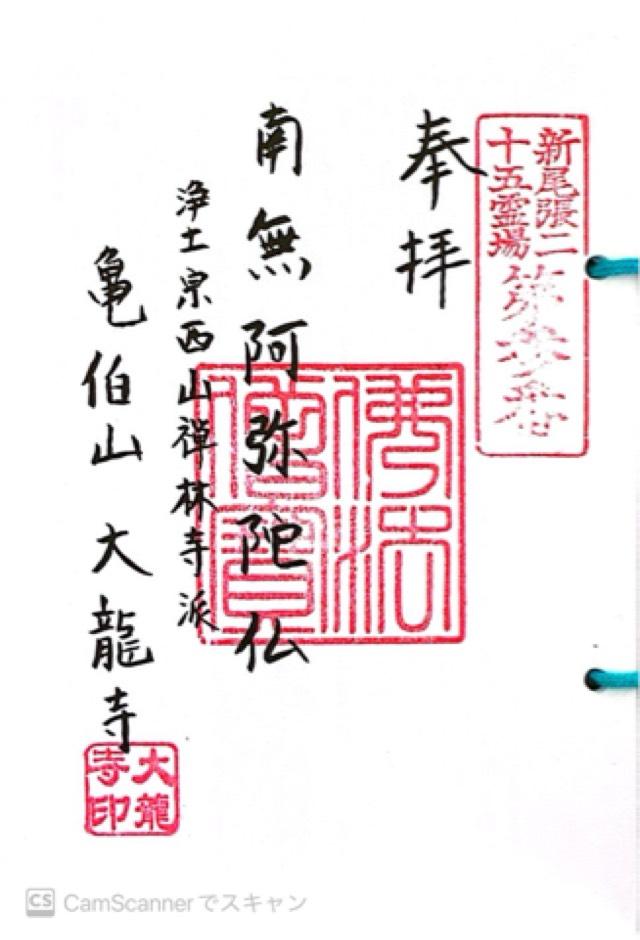 新尾張二
十五霊場
奉拝
佛法
僧寶
南無阿弥陀仏
浄土宗西山禅林寺派
亀伯山 大龍寺
大龍
寺印
CS CamScannerでスキャン